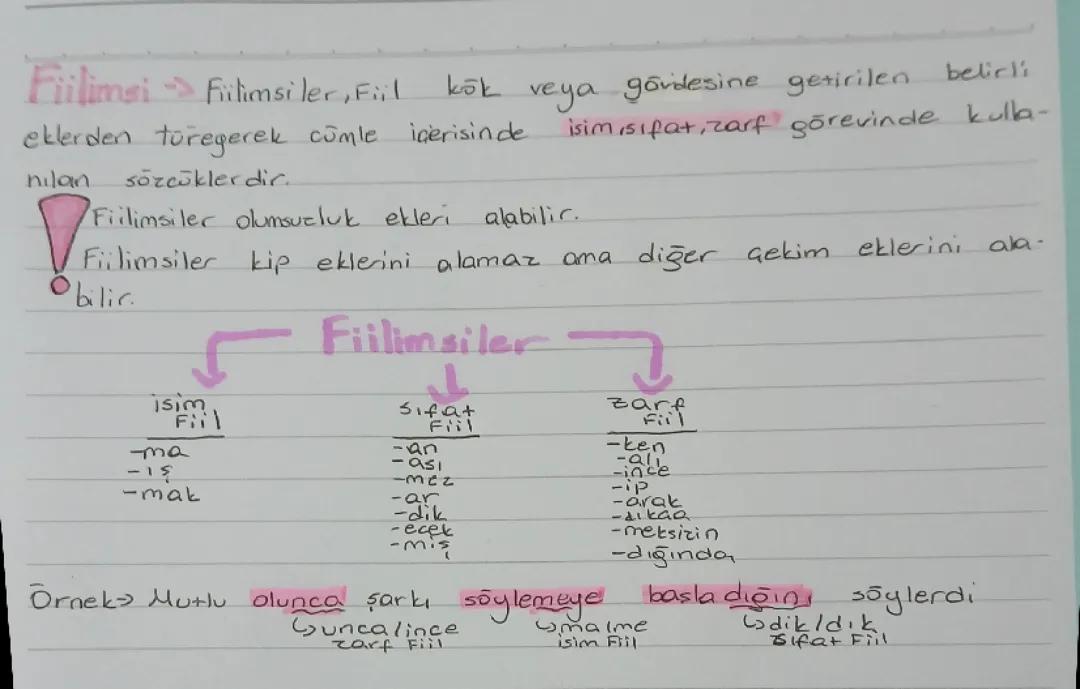 Fiilimsi → Fiilimsiler, Fiil kök veya gövdesine getirilen belirli
eklerden türeyerek cümle içerisinde isim, sıfat, zarf görevinde kulla-
nılan sözcüklerdir.
! Fiilimsiler olumsuzluk ekleri alabilir.
Fiilimsiler kip eklerini alamaz ama diğer çekim eklerini ala-
bilir.
Fiilimsiler
isim Fiil
-ma
-ış
-mak
sıfat Fiil
-an
-ası
-mez
-ar
-dik
-ecek
-miş
zarf Fiil
-ken
-alı
-ince
-ip
-arak
-dıkça
-meksizin
-dığında
Örnek→ Mutlu olunca şarkı söylemeye başladığını söylerdi
↳unca/ince ↳ma/me ↳dik/dık
zarf Fiil isim Fiil sıfat Fiil